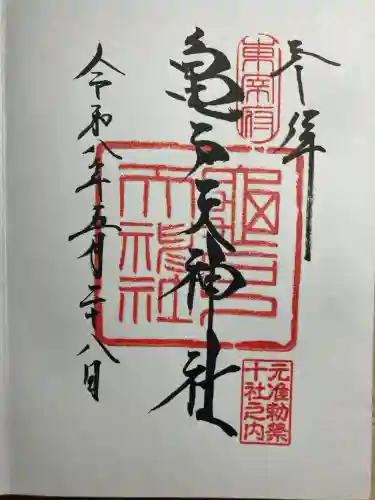 奉拝
東宰府
亀戸天神社
龜戸天神社
元准勅祭
十社之内
令和八年五月二十八日